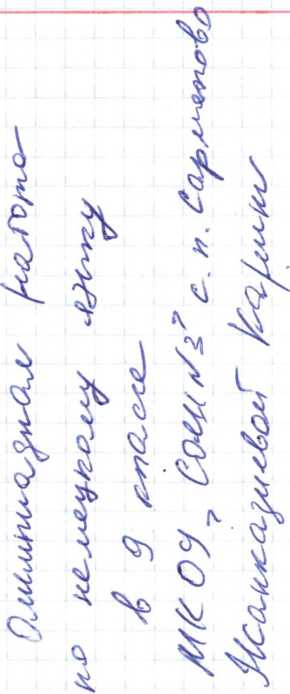 Олимпиадная работа
по немецкому языку
в 9 классе
МКОУ „СОШ №3" с. п. Сармаково
Жанказиевой Карины